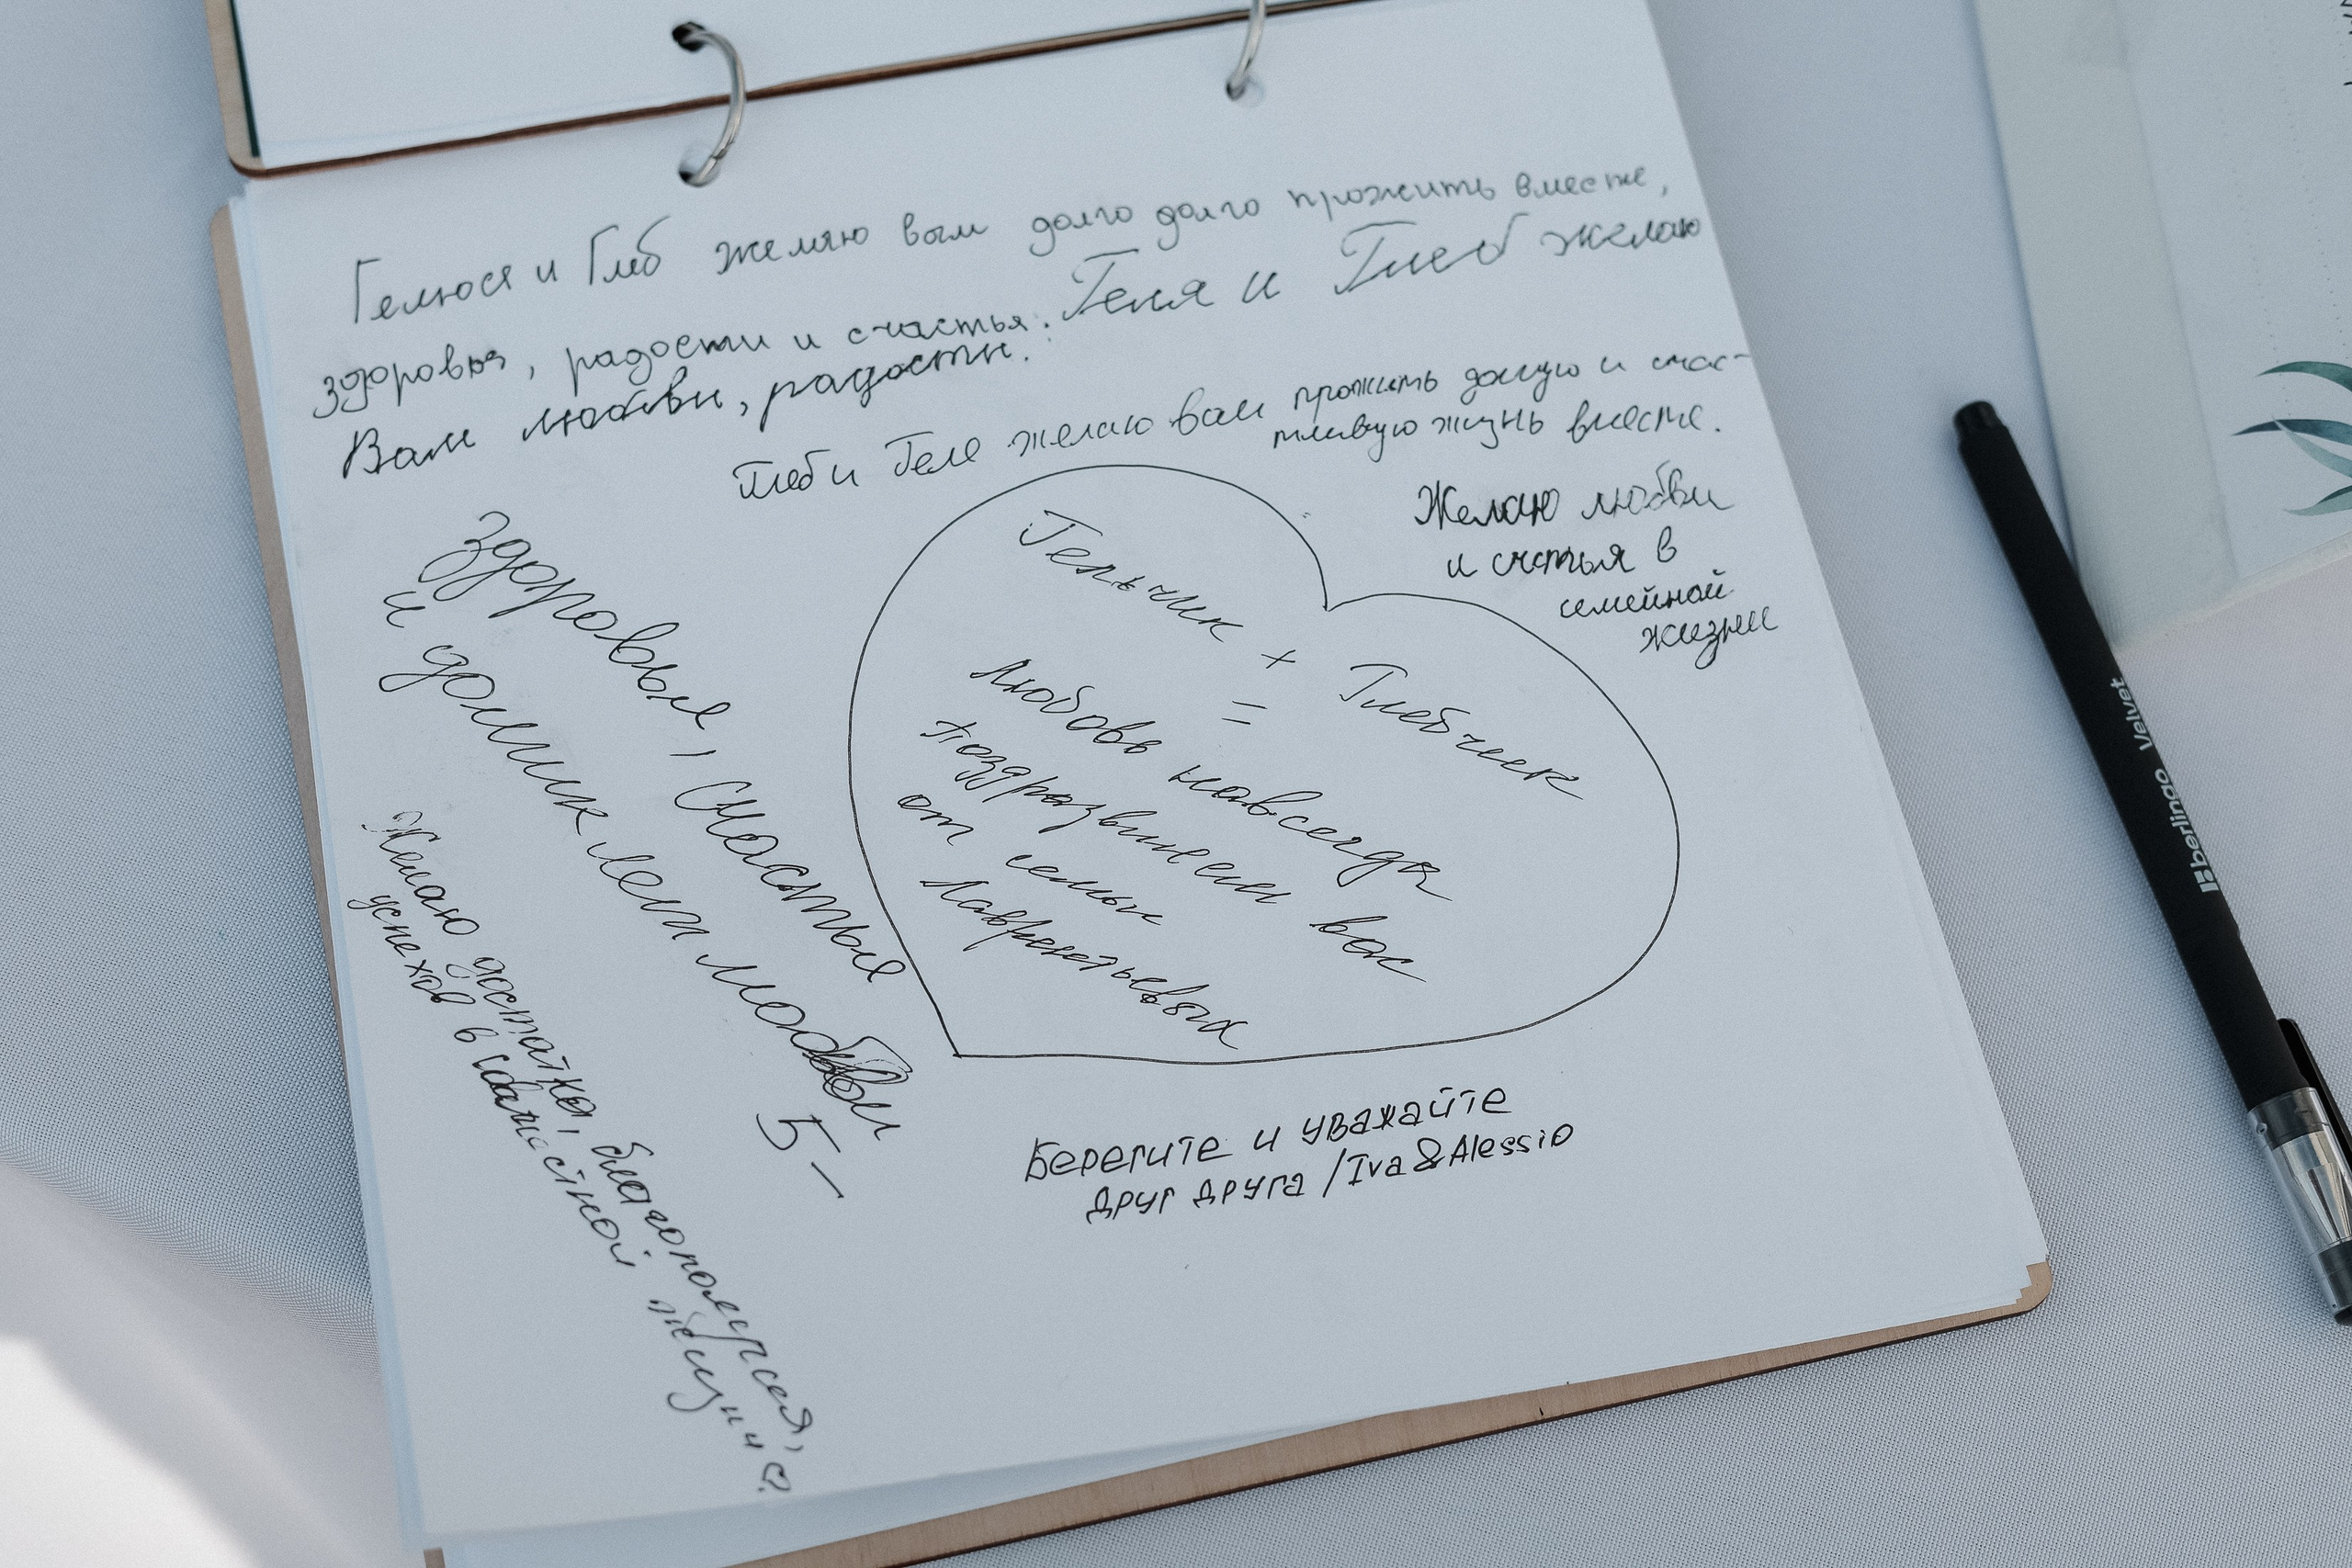 Гелюся и Глеб желяю вам долго долго прожить вместе,
здоровья, радости и счастья.
Геля и Глеб желаю
Вам любви, радости.
Глеб и Геле желаю вам прожить долгую и счас-
тливую жизнь вместе.
Желаю любви
и счстья в
семейной
жизни
Здоровья, счастья
и долгих лет любви
Б
Желаю достатка, благополучия,
успехов в совместной жизни
Гельчик + Глебчик
=
Любовь навсегда
Поздравляем вас
от семьи
Лаврентьевых
Берегите и уважайте
друг друга /Iva&Alessio
berlingo Velvet